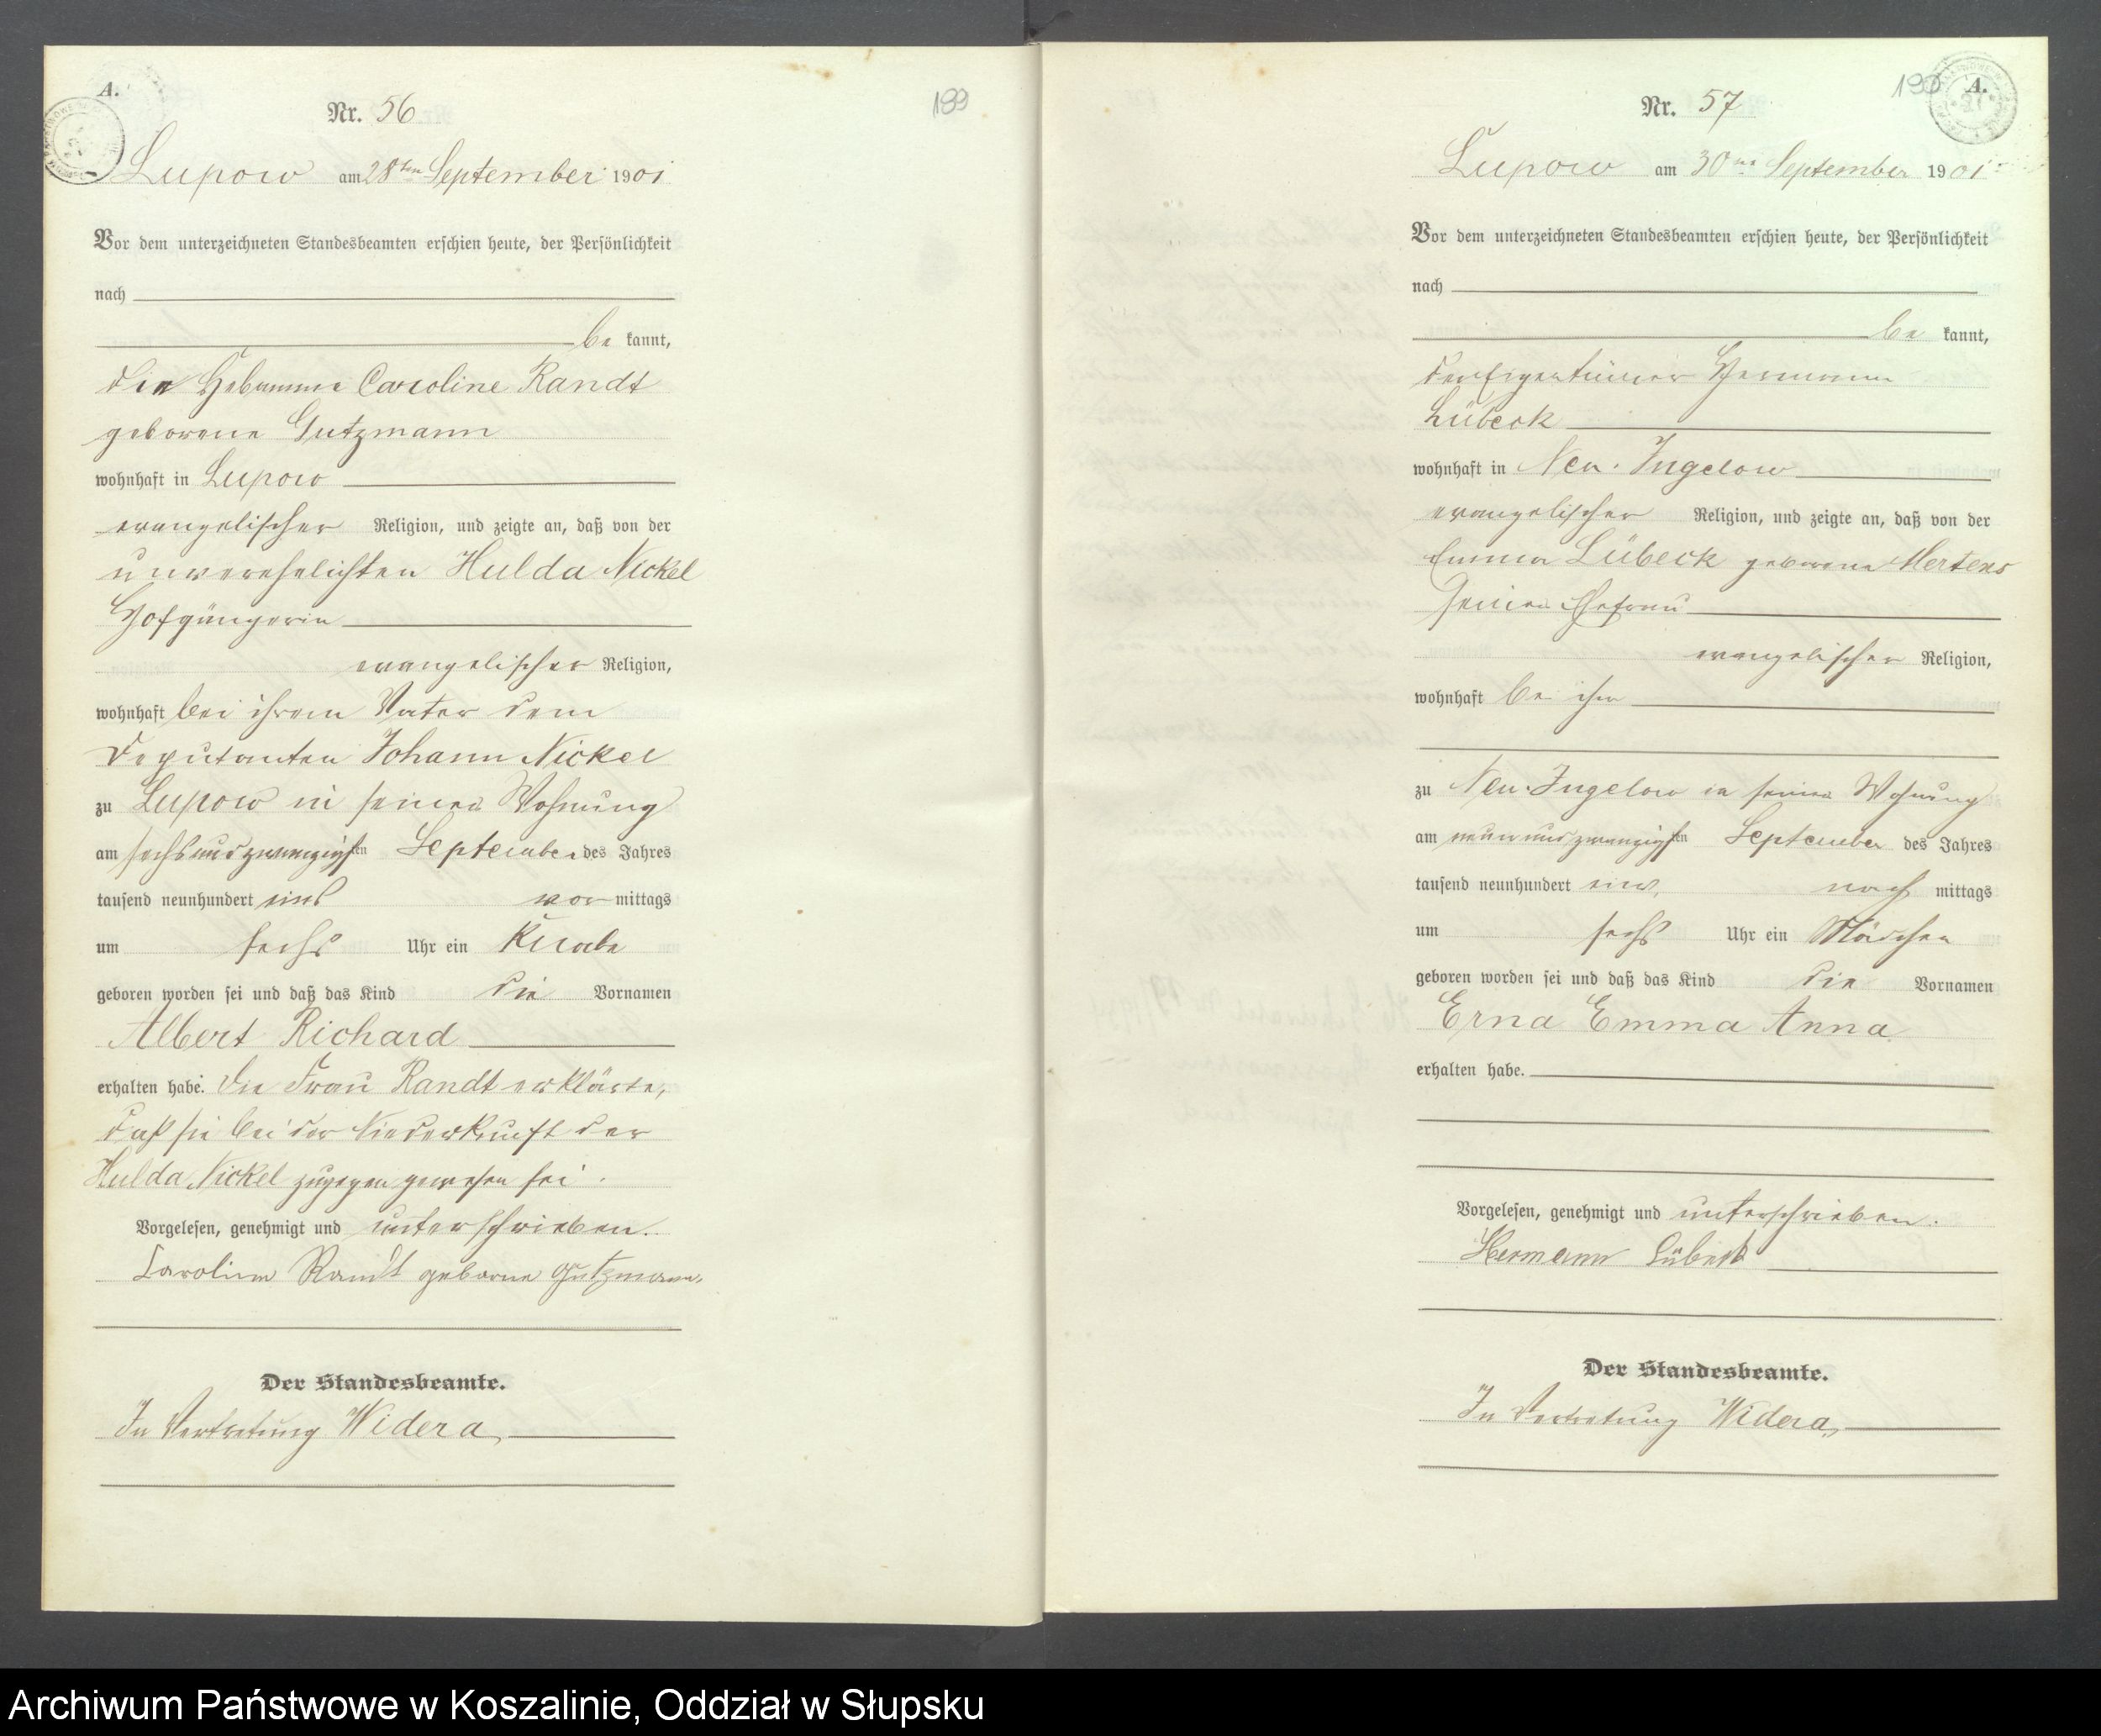 A.
Nr. 56
189
Lupow am 28ten September 1901
Vor dem unterzeichneten Standesbeamten erschien heute, der Persönlichkeit
nach
be kannt,
die Hebamme Caroline Randt
geborene Gutzmann
wohnhaft in Lupow
evangelischer Religion, und zeigte an, daß von der
unverehelichten Hulda Nickel
Hofgängerin
evangelischer Religion,
wohnhaft bei ihrem Vater dem
Deputanten Johann Nickel
zu Lupow in seiner Wohnung
am sechsundzwanzigsten September des Jahres
tausend neunhundert eins vor mittags
um sechs Uhr ein Knabe
geboren worden sei und daß das Kind die Vornamen
Albert Richard
erhalten habe. Die Frau Randt erklärte,
daß sie bei der Niederkunft der
Hulda Nickel zugegen gewesen sei.
Vorgelesen, genehmigt und unterschrieben.
Caroline Randt geborne Gutzmann.
Der Standesbeamte.
In Vertretung Widera
190 A.
Nr. 57
Lupow am 30ten September 1901
Vor dem unterzeichneten Standesbeamten erschien heute, der Persönlichkeit
nach
be kannt,
der Eigentümer Hermann
Lübeck
wohnhaft in Neu-Jugelow
evangelischer Religion, und zeigte an, daß von der
Emma Lübeck geborene Mertens
seiner Ehefrau
evangelischer Religion,
wohnhaft bei ihm
zu Neu-Jugelow in seiner Wohnung
am neunundzwanzigsten September des Jahres
tausend neunhundert eins nach mittags
um sechs Uhr ein Mädchen
geboren worden sei und daß das Kind die Vornamen
Erna Emma Anna
erhalten habe.
Vorgelesen, genehmigt und unterschrieben.
Hermann Lübeck
Der Standesbeamte.
In Vertretung Widera
Archiwum Państwowe w Koszalinie, Oddział w Słupsku